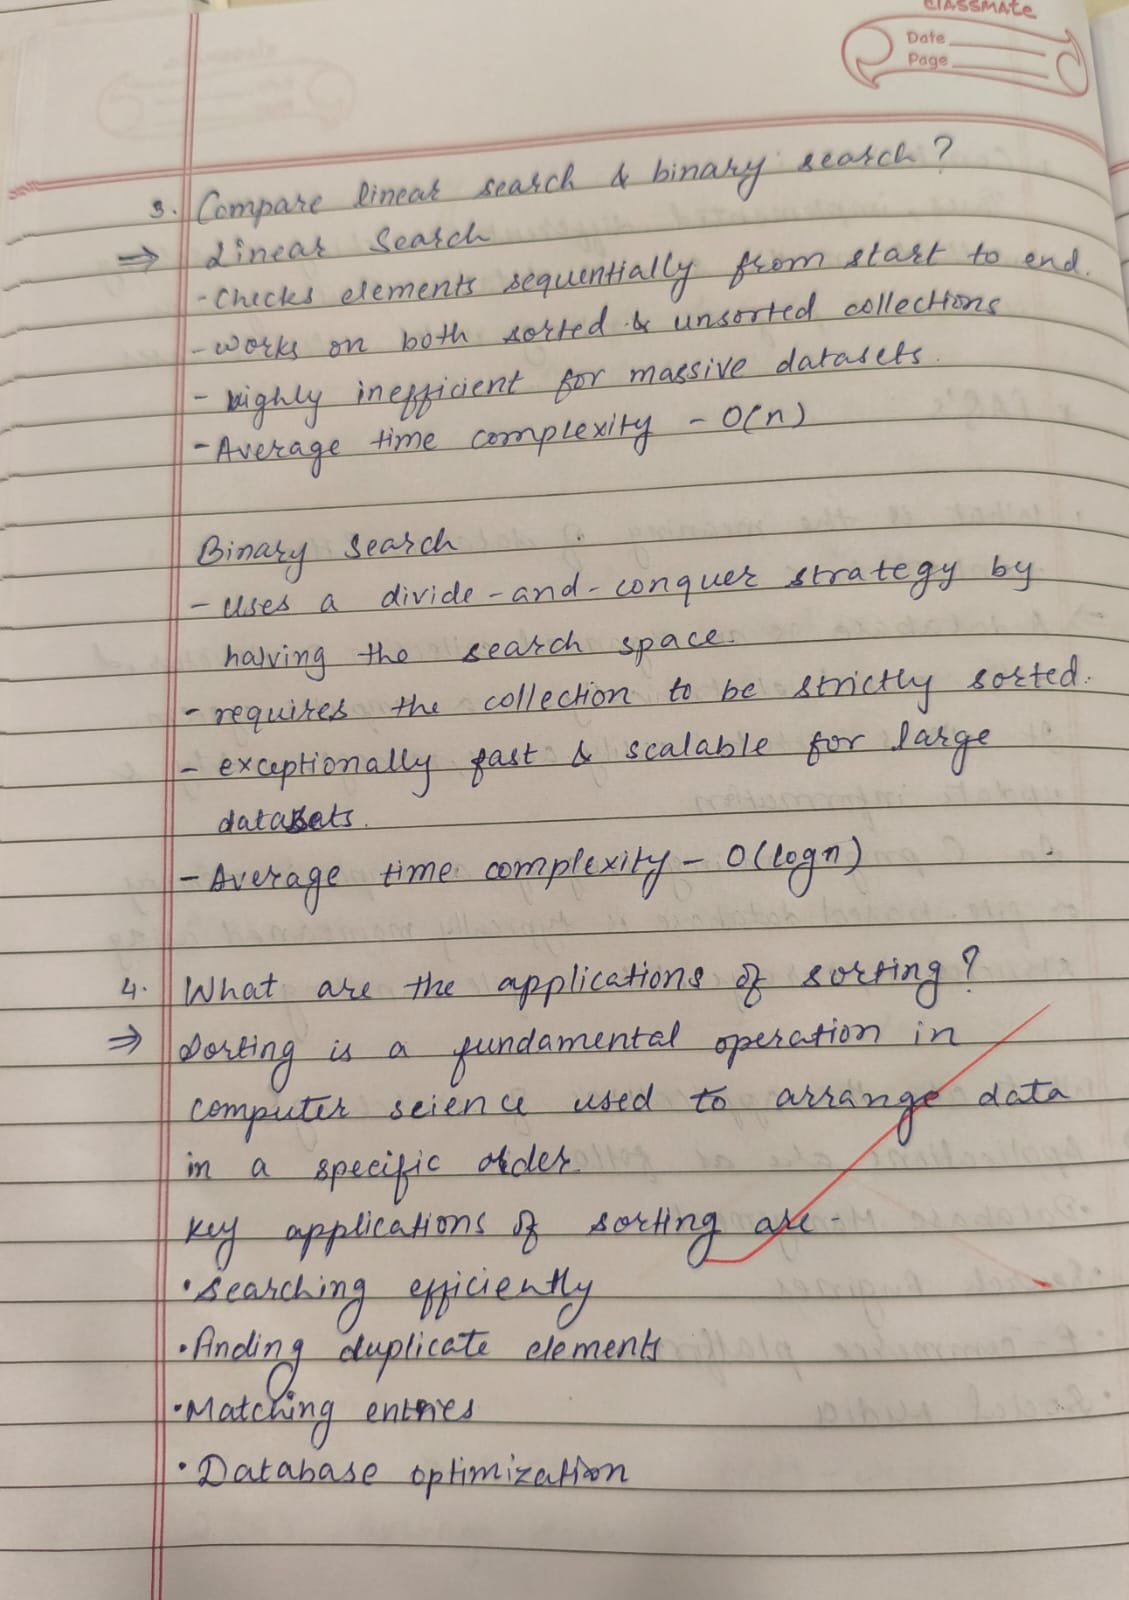 classmate
Date
Page
3. Compare linear search & binary search ?
⇒ Linear Search
- Checks elements sequentially from start to end.
- works on both sorted & unsorted collections
- highly inefficient for massive datasets.
- Average time complexity - O(n)
Binary Search
- uses a divide-and-conquer strategy by
halving the search space.
- requires the collection to be strictly sorted.
- exceptionally fast & scalable for large
datasets.
- Average time complexity - O(logn)
4. What are the applications of sorting?
⇒ Sorting is a fundamental operation in
computer science used to arrange data
in a specific order.
Key applications of sorting are -
• Searching efficiently
• Finding duplicate elements
• Matching entries
• Database optimization